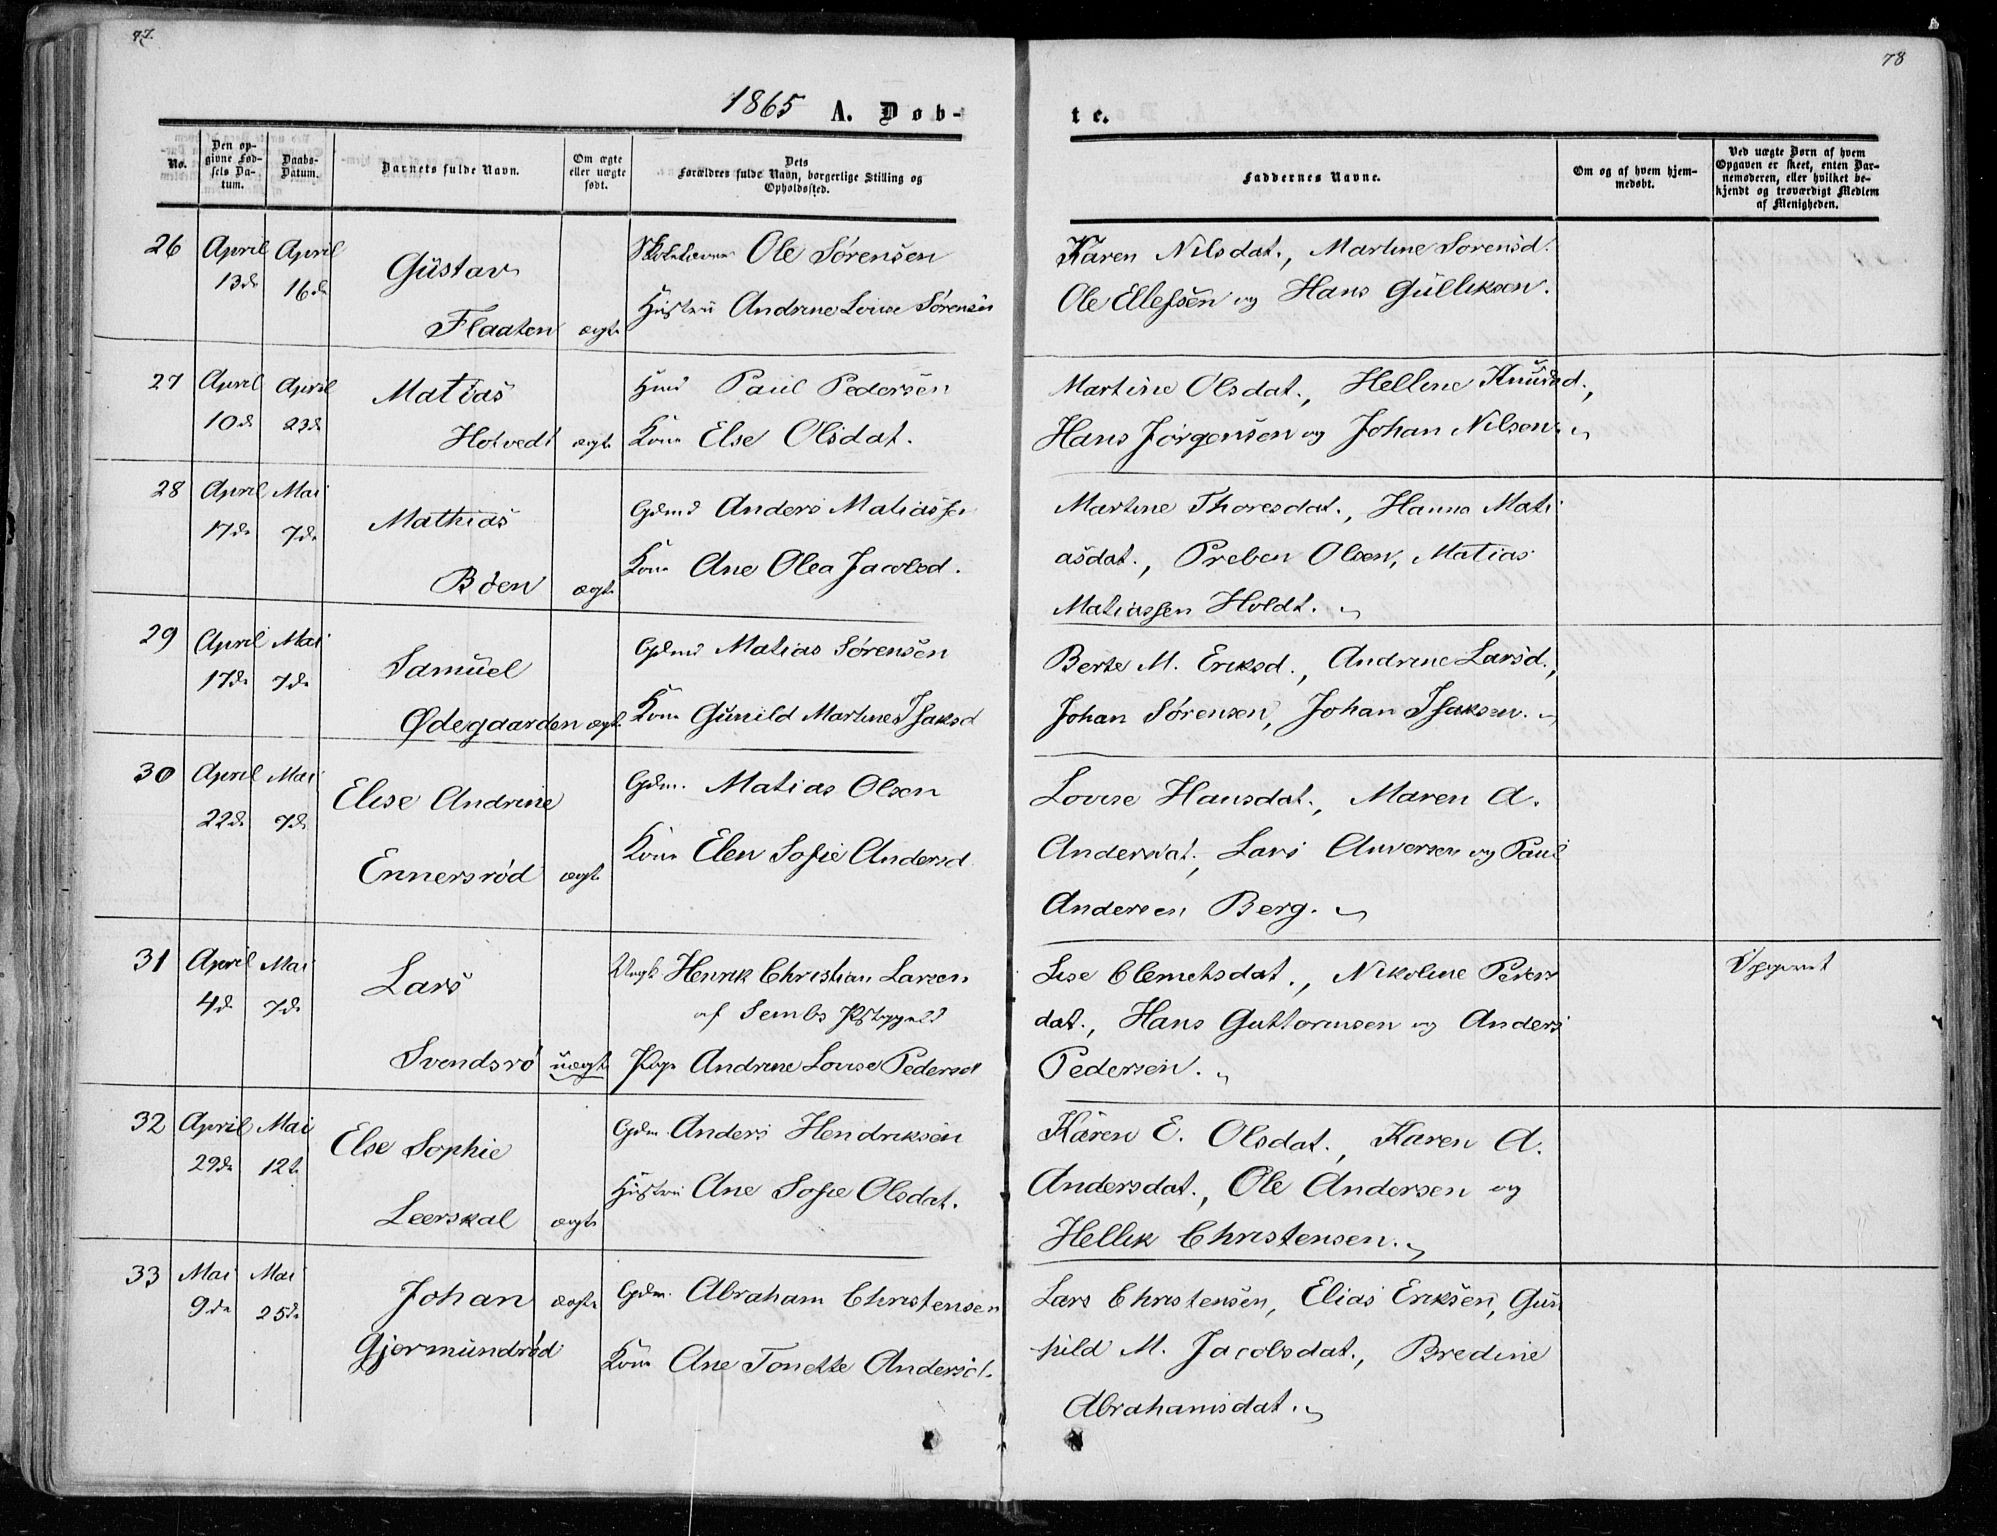 77.
78
1865 A. Døb-
te.
No.
Den op-
givne Fød-
sels Da-
tum.
Daabs-
Datum.
Barnets fulde Navn.
Om ægte
eller uægte
født.
Dets
Forældres fulde Navn, borgerlige Stilling og
Opholdssted.
Faddernes Navne.
Om og af hvem hjem-
medøbt.
Ved uægte Børn af hvem
Opgaven er skeet, enten Bar-
nemoderen, eller hvilket be-
kjendt og troværdigt Medlem
af Menigheden.
26 April April
13de 16de
Gustav
Flaaten ægte
Ole Sørensen
Hustru Andrine Lovise Sørensen
Karen Nilsdat., Martine Sorensd.
Ole Ellefsen og Hans Gulliksen.
27 April April
10de 23de
Matias
Hotvedt ægte
Hmd Paul Pedersen
Kone Else Olsdat.
Martine Olsdat., Helline Knudsd.,
Hans Jørgensen og Johan Nilsen.
28 April Mai
17de 7de
Mathias
Bøen ægte
Gdmd Anders Matiassen
Kone Ane Olea Jacobsd.
Martine Thoresdat., Hanna Mati
asdat., Preben Olsen, Matias
Matiassen Holdt.
29 April Mai
17de 7de
Samuel
Ødegaarden ægte
Gdmd Matias Sørensen
Kone Gunild Martine Isaksd
Berte M. Eriksd., Andrine Larsd.,
Johan Sørensen, Johan Isaksen.
30 April Mai
22de 7de
Elise Andrine
Ennersrød ægte
Gdm. Matias Olsen
Kone Elen Sofie Andersd
Lovise Hansdat., Maren A.
Andersdat., Lars Anversen og Paul
Andersen Berg.
31 April Mai
4de 7de
Lars
Svendsrø uægte
Ungk Henrik Christian Larsen
af Sembs Pstgjeld
Pige Andrine Lovise Pedersd
Lise Clemetsdat., Nikoline Peders
dat., Hans Guttormsen og Anders
Pedersen.
32 April Mai
29de 12te
Else Sophie
Leerskal ægte
Gdm Anders Hendriksen
Hustru Ane Sofie Olsdat.
Karen E. Olsdat., Karen A.
Andersdat., Ole Andersen og
Hellik Christensen.
33 Mai Mai
9de 25de
Johan ægte
Gjermundrød
Gdm. Abraham Christensen
Kone Ane Tonette Andersdt.
Lars Christensen, Elias Eriksen, Gun
hild M. Jacobsdat., Bredine
Abrahamsdat.